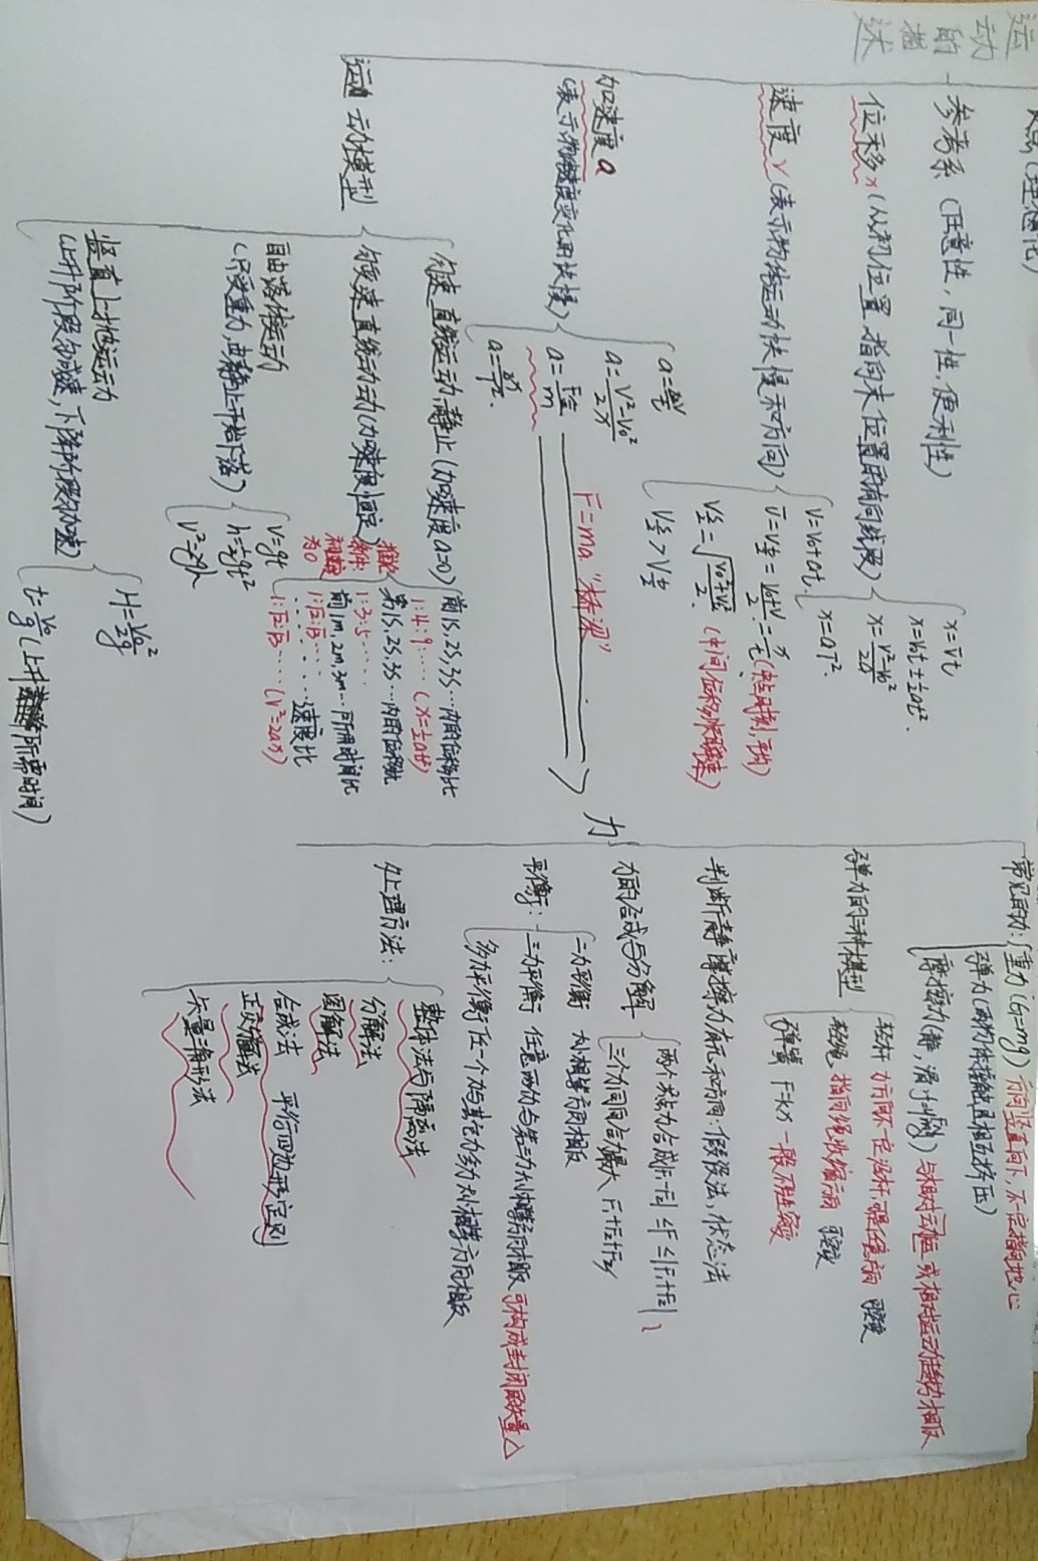 运动的描述
质点(理想化)
参考系(任意性,同一性,便利性)
位移x(从初位置指向末位置的有向线段)
x=v̄t
x=V₀t±½at².
x=(V²-V₀²)/2a
x=aT².
速度V(表示物体运动快慢和方向)
V=V₀+at.
V̄=V_{t/2}=(V₀+V)/2=x/t(中间时刻,平均)
V_{x/2}=√((V₀²+V²)/2).(中间位移
V_{x/2}>V_{t/2}
加速度a
(表示物体速度变化的快慢)
a=Δv/t
a=(V²-V₀²)/2x
a=F合/m
a=Δx/T².
F=ma "桥梁"
运动模型
匀速直线运动,静止(加速度a=0)
匀变速直线运动(加速度恒定)
推论
条件:
初速度
为0
前1s,2s,3s…内的位移比
1:4:9……(x=½at²)
第1s,2s,3s…内的位移比
1:3:5……
前1m,2m,3m…所用时间比
1:√2:√3……
……速度比
1:√2:√3……(V²=2ax)
自由落体运动
(只受重力,由静止开始下落)
V=gt
h=½gt²
V²=2gh
竖直上抛运动
(上升阶段匀减速,下降阶段匀加速)
H=V₀²/2g
t=V₀/g(上升 所需时间)
力
常见的力:
重力(G=mg)方向竖直向下,不一定指向地心
弹力(两物体接触且相互挤压)
摩擦力(静,滑f=μFN)与相对运动 或相对运动趋势相反
弹力的三种模型
轻杆 力方向不一定沿杆, 可突变
轻绳 指向绳收缩方向 可突变
弹簧 F=kx 一般不能突变
判断静摩擦力有无和方向:假设法,状态法
力的合成与分解
两个共点力合成|F₁-F₂|≤F≤|F₁+F₂|
三个力同向合力最大 F₁+F₂+F₃
平衡:
二力平衡 大小相等方向相反
三力平衡 任意两力的与第三力大小相等方向相反 可构成封闭的矢量△
多力平衡:任一个力与其它力 大小相等方向相反
处理方法:
整体法与隔离法
分解法
图解法
合成法 平行四边形定则
正交分解法
矢量三角形法